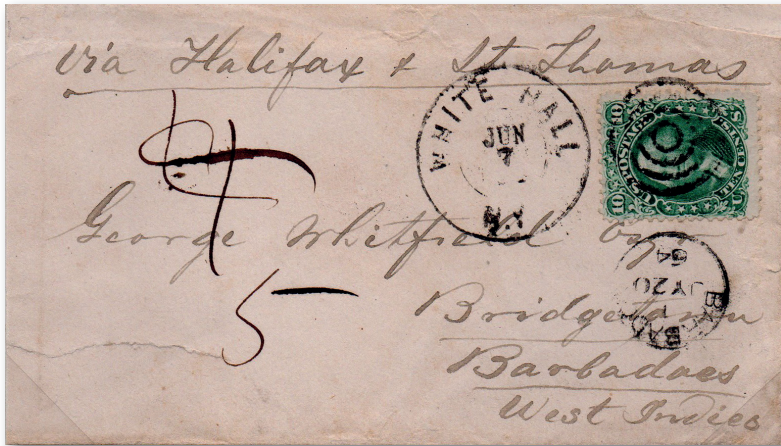 via Halifax & St Thomas
WHITE HALL
JUN
7
N.Y
10 U.S. POSTAGE 10
TEN CENTS
U S
4
George Whitfield Esqr
5
BARBADOS
1
JY 20
64
Bridgetown
Barbadoes
West Indies